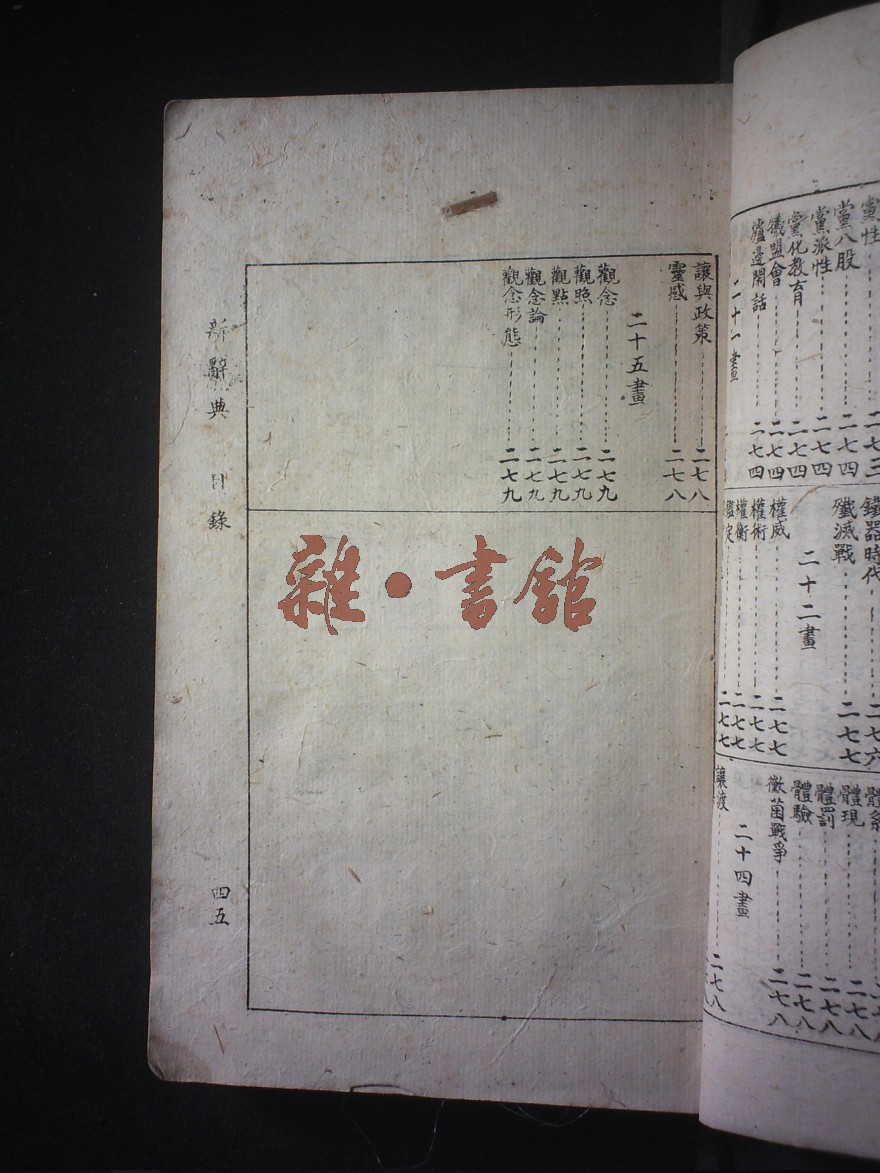 黨八股……二七四
黨派性……二七四
黨化教育……二七四
儀盟會……二七四
爐邊閑話……二七四
二十一畫
鐵器時代……二七六
殲滅戰……二七七
二十二畫
權威……二七七
權術……二七七
權衡……二七七
體現……二七八
體罰……二七八
體驗……二七八
黴菌戰爭……二七八
二十四畫
讓渡……二七八
讓與政策……二七八
靈感……二七八
二十五畫
觀念……二七九
觀照……二七九
觀點……二七九
觀念論……二七九
觀念形態……二七九
新辭典 目錄 四五
雜·書館